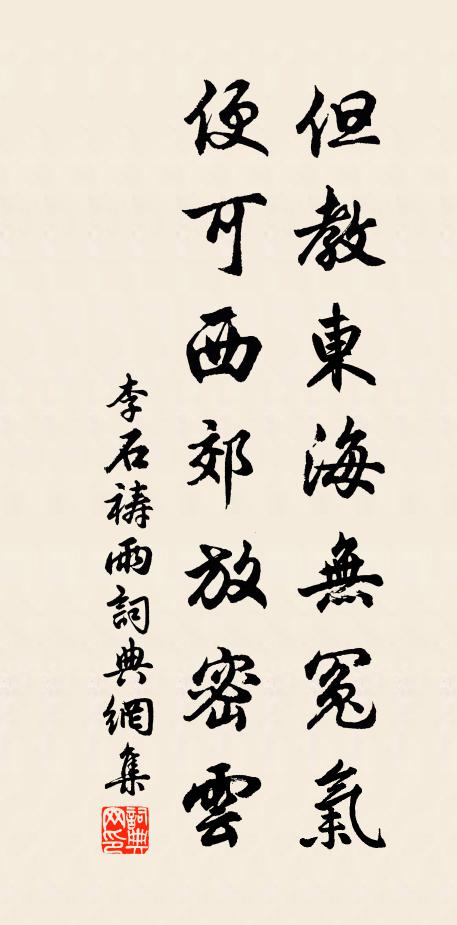 但教東海無冤氣
便可西郊放密雲
李石禱雨詞典網集
詞典网印